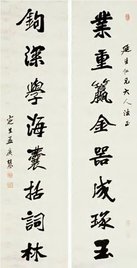 仁兄大人法正
業重籯金器成琢玉
鉤深學海囊括詞林